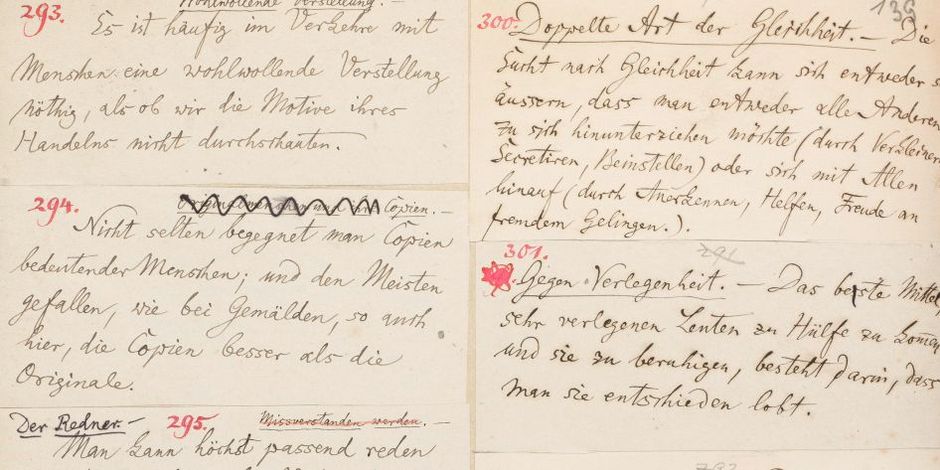 293.
Wohlwollende Verstellung. —
Es ist häufig im Verkehre mit
Menschen eine wohlwollende Verstellung
nöthig, als ob wir die Motive ihres
Handelns nicht durchschauten.
294.
Copien. —
Nicht selten begegnet man Copien
bedeutender Menschen; und den Meisten
gefallen, wie bei Gemälden, so auch
hier, die Copien besser als die
Originale.
Der Redner. — 295. Missverstanden werden. —
Man kann höchst passend reden
136
300. Doppelte Art der Gleichheit. — Die
Sucht nach Gleichheit kann sich entweder s
äussern, dass man entweder alle Anderen
zu sich hinunterziehen möchte (durch Verkleinern
Secretiren, Beinstellen) oder sich mit Allen
hinauf (durch Anerkennen, Helfen, Freude an
fremdem Gelingen.).
301.
291
Gegen Verlegenheit. — Das beste Mittel,
sehr verlegenen Leuten zu Hülfe zu kommen
und sie zu beruhigen, besteht darin, dass
man sie entschieden lobt.
292